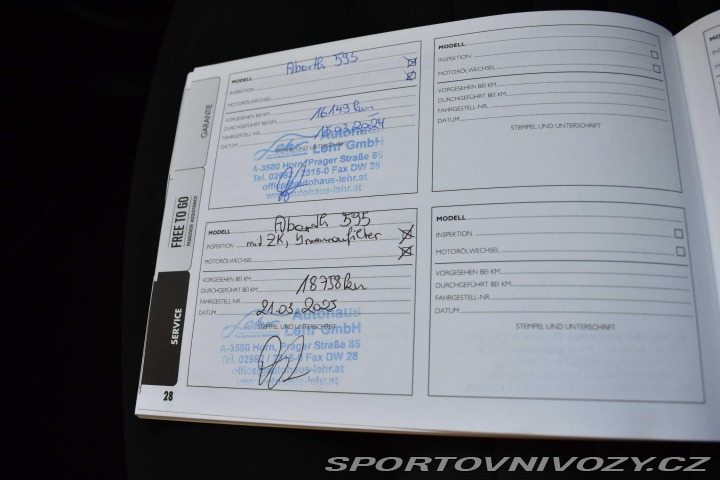 GARANTIE
FREE TO GO
SERVICE
28
MODELL Abarth 595
INSPEKTION
MOTORÖLWECHSEL
VORGESEHEN BEI KM
DURCHGEFÜHRT BEI KM 16149 km
FAHRGESTELL-NR.
DATUM 18.03.2024
STEMPEL UND UNTERSCHRIFT
Autohaus
Lehr GmbH
A-3580 Horn, Prager Straße 85
Tel. 02982 / 2315-0 Fax DW 28
office@autohaus-lehr.at
www.autohaus-lehr.at
MODELL Abarth 595
INSPEKTION mit ZK, Innenraumfilter
MOTORÖLWECHSEL
VORGESEHEN BEI KM
DURCHGEFÜHRT BEI KM 18758 km
FAHRGESTELL-NR.
DATUM 21.03.2025
STEMPEL UND UNTERSCHRIFT
Autohaus
Lehr GmbH
A-3580 Horn, Prager Straße 85
Tel. 02982 / 2315-0 Fax DW 28
office@autohaus-lehr.at
www.autohaus-lehr.at
MODELL
INSPEKTION
MOTORÖLWECHSEL
VORGESEHEN BEI KM
DURCHGEFÜHRT BEI KM
FAHRGESTELL-NR.
DATUM
STEMPEL UND UNTERSCHRIFT
MODELL
INSPEKTION
MOTORÖLWECHSEL
VORGESEHEN BEI KM
DURCHGEFÜHRT BEI KM
FAHRGESTELL-NR.
DATUM
STEMPEL UND UNTERSCHRIFT
SPORTOVNIVOZY.CZ